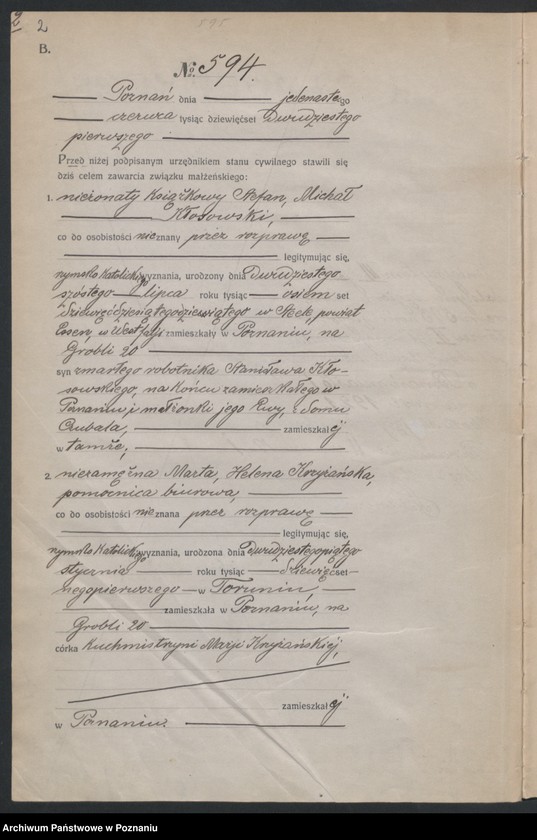 2 2
595
B.
№ 594.
Poznań dnia jedenastego
czerwca tysiąc dziewięćset dwudziestego
pierwszego
Przed niżej podpisanym urzędnikiem stanu cywilnego stawili się
dziś celem zawarcia związku małżeńskiego:
1. nieżonaty książkowy Stefan, Michał
Kłosowski,
co do osobistości nieznany przez rozprawę
legitymując się,
rzymsko katolickiego wyznania, urodzony dnia dwudziestego
szóstego lipca roku tysiąc osiem set
dziewięćdziesiątegodziewiątego w powiat
Essen, w Westfalji zamieszkały w Poznaniu, na
Grobli 20
syn zmarłego robotnika Stanisława Kło-
sowskiego, na końcu zamieszkałego w
Poznaniu, i małżonki jego Ewy, z domu
Cubala, zamieszkałej
w tamże,
2 niezamężna Marta, Helena Krzyżańska,
pomocnica biurowa,
co do osobistości nieznana przez rozprawę
legitymując się,
rzymsko katolickiego wyznania, urodzona dnia dwudziestegopiątego
stycznia roku tysiąc dziewięćset
negopierwszego w Toruniu,
zamieszkała w Poznaniu, na
Grobli 20
córka kuchmistrzyni Marji Krzyżańskiej,
zamieszkałej
w Poznaniu.
Archiwum Państwowe w Poznaniu